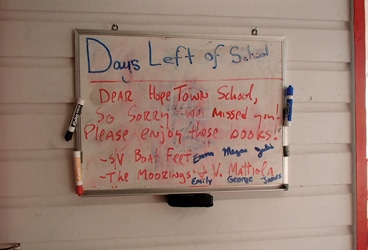 Days Left of School
Dear Hope Town School,
So Sorry we missed you!
Please enjoy these books!!
-SV Boat Feet Emma Megan
-The Moorings + V. Mattiola
Emily George James